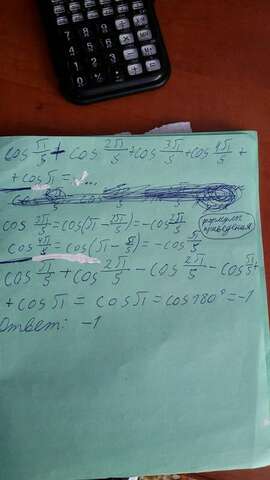 cos π/5 + cos 2π/5 + cos 3π/5 + cos 4π/5 +
+ cos π = ...
cos 3π/5 = cos(π - 2π/5) = -cos 2π/5
формулы
приведения
cos 4π/5 = cos(π - π/5) = -cos π/5
cos π/5 + cos 2π/5 - cos 2π/5 - cos π/5 +
+ cos π = cos π = cos 180° = -1
Ответ: -1